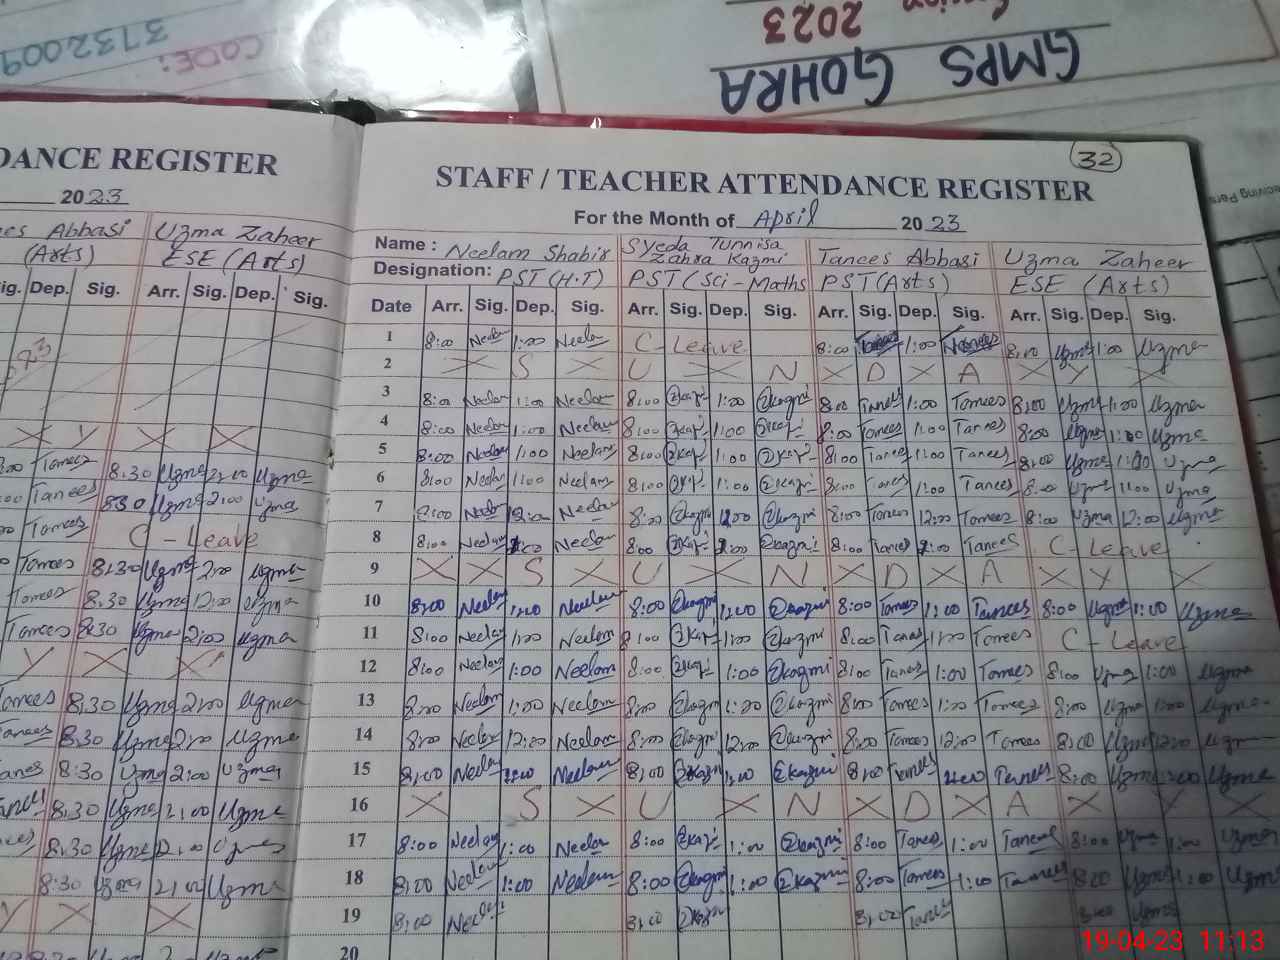 CODE: 3732009
Session 2023
GMPS GOHRA
DANCE REGISTER
2023
ees Abbasi Uzma Zaheer
(Arts) ESE (Arts)
Sig. Dep. Sig. Arr. Sig. Dep. Sig.
Tanees 8.30 Uzma 2:00 Uzma
Tanees 830 Uzma 2:00 Uzma
Tanees C-Leave
Tanees 8.30 Uzma 2:00 Uzma
Tanees 8.30 Uzma 12:00 Uzma
Tanees 8:30 Uzma 2:00 Uzma
Y X X
Tanees 8.30 Uzma 2:00 Uzma
Tanees 8.30 Uzma 2:00 Uzma
Tanees 8:30 Uzma 2:00 Uzma
8:30 Uzma 2:00 Uzma
8:30 Uzma 2:00 Uzma
8:30 Uzma 2:00 Uzma
Y X X
32
STAFF / TEACHER ATTENDANCE REGISTER
For the Month of April 2023
Name : Neelam Shabir Syeda Tunnisa Zahra Kazmi Tanees Abbasi Uzma Zaheer
Designation: PST (H.T) PST (Sci-Maths PST (Arts) ESE (Arts)
Date Arr. Sig. Dep. Sig. Arr. Sig. Dep. Sig. Arr. Sig. Dep. Sig. Arr. Sig. Dep. Sig.
1 8:00 Neelam 1:00 Neelam C-Leave 8:00 Tanees 1:00 Tanees 8:00 Uzma 1:00 Uzma
2 X S X U X N X D X A X Y X
3 8:00 Neelam 1:00 Neelam 8:00 Zkazmi 1:00 Zkazmi 8:00 Tanees 1:00 Tanees 8:00 Uzma 1:00 Uzma
4 8:00 Neelam 1:00 Neelam 8:00 Zkazmi 1:00 Zkazmi 8:00 Tanees 1:00 Tanees 8:00 Uzma 1:00 Uzma
5 8:00 Neelam 1:00 Neelam 8:00 Zkazmi 1:00 Zkazmi 8:00 Tanees 1:00 Tanees 8:00 Uzma 1:00 Uzma
6 8:00 Neelam 1:00 Neelam 8:00 Zkazmi 1:00 Zkazmi 8:00 Tanees 1:00 Tanees 8:00 Uzma 1:00 Uzma
7 8:00 Neelam 12:00 Neelam 8:00 Zkazmi 12:00 Zkazmi 8:00 Tanees 12:00 Tanees 8:00 Uzma 12:00 Uzma
8 8:00 Neelam Neelam 8:00 Zkazmi Zkazmi 8:00 Tanees Tanees C-Leave
9 X X S X U X N X D X A X Y X
10 8:00 Neelam 1:00 Neelam 8:00 Zkazmi 1:00 Zkazmi 8:00 Tanees 1:00 Tanees 8:00 Uzma 1:00 Uzma
11 8:00 Neelam 1:00 Neelam 8:00 Zkazmi 1:00 Zkazmi 8:00 Tanees 1:00 Tanees C-Leave
12 8:00 Neelam 1:00 Neelam 8:00 Zkazmi 1:00 Zkazmi 8:00 Tanees 1:00 Tanees 8:00 Uzma 1:00 Uzma
13 8:00 Neelam 1:00 Neelam 8:00 Zkazmi 1:00 Zkazmi 8:00 Tanees 1:00 Tanees 8:00 Uzma 1:00 Uzma
14 8:00 Neelam 12:00 Neelam 8:00 Zkazmi 12:00 Zkazmi 8:00 Tanees 12:00 Tanees 8:00 Uzma 12:00 Uzma
15 8:00 Neelam Neelam 8:00 Zkazmi 1:00 Zkazmi 8:00 Tanees Tanees 8:00 Uzma Uzma
16 X S X U X N X D X A X Y X
17 8:00 Neelam 1:00 Neelam 8:00 Zkazmi 1:00 Zkazmi 8:00 Tanees 1:00 Tanees 8:00 Uzma 1:00 Uzma
18 8:00 Neelam 1:00 Neelam 8:00 Zkazmi 1:00 Zkazmi 8:00 Tanees 1:00 Tanees 8:00 Uzma 1:00 Uzma
19 8:00 Neelam 8:00 Zkazmi 8:00 Tanees 8:00 Uzma
20
19-04-23 11:13